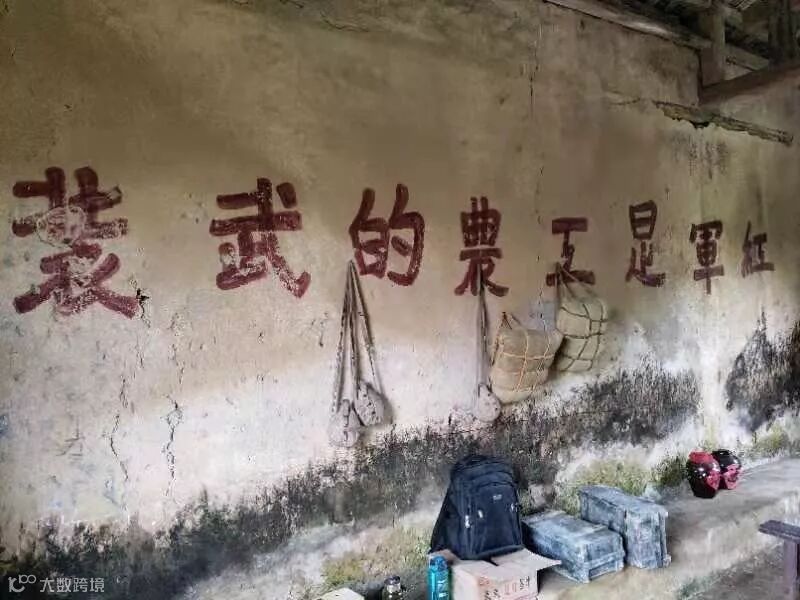 红軍是工農的武装
大数跨境